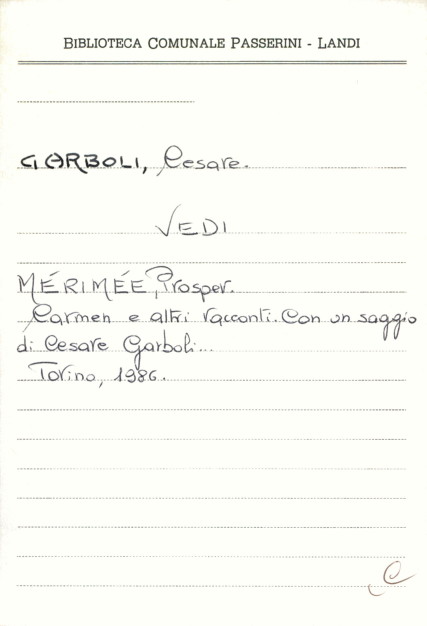 BIBLIOTECA COMUNALE PASSERINI - LANDI
GARBOLI, Cesare.
VEDI
MÉRIMÉE, Prosper.
Carmen e altri racconti. Con un saggio
di Cesare Garboli...
Torino, 1986.
C